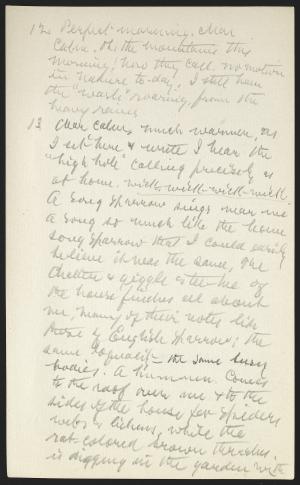 12 Perfect morning, clear
calm. Oh the mountains this
morning! how they call. no motion
in nature to-day, I still hear
the "wash" roaring, from the
heavy rains
13 Clear calm, much warmer, as
I sit here & write I hear the
"high hole" calling precisely as
at home. wick-wick-wick-wick.
A song sparrow sings near me
a song so much like the home
song sparrow that I could easily
believe it was the same, the
chatter & giggle of the
the house finches all about
me, many of their notes like
those of English Sparrow; the
same loquacity - the same busy
bodies. A Comes
to the roof over me & to the
sides of the house for Spiders
webs & lichens, while the
rat colored brown thrasher
is digging in the garden with